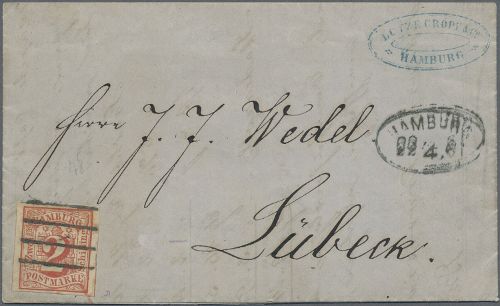 HAMBURG
HAMBURG
22 4
Herrn J. J. Wedel
Lübeck.
HAMBURG
2
POSTMARKE